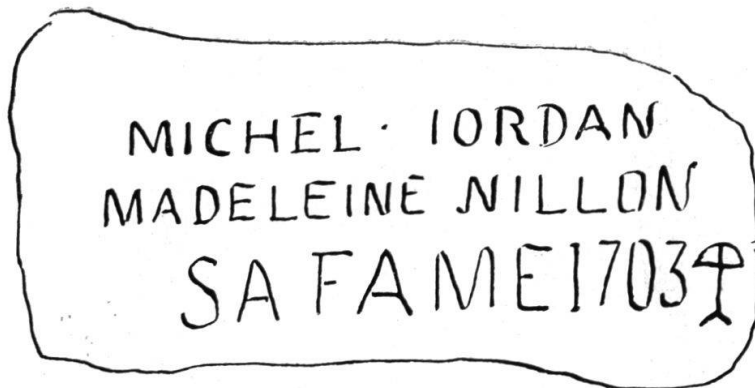 MICHEL · IORDAN
MADELEINE NILLON
SA FAME 1703